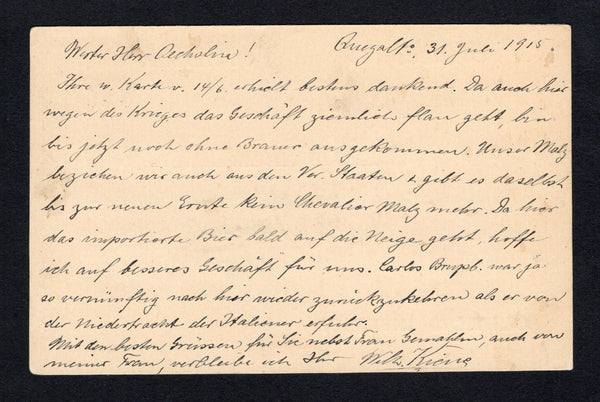 Werter Herr Oechslin! Quezalto, 31. Juli 1915.
Ihre w. Karte v. 14/6. erhielt bestens dankend. Da auch hier
wegen des Krieges das Geschäft ziemlich flau geht, bin
bis jetzt noch ohne Brauer ausgekommen. Unser Malz
beziehen wir auch aus den Ver. Staaten & gibt es daselbst
bis zur neuen Ernte kein Chevalier Malz mehr. Da hier
das importierte Bier bald auf die Neige geht, hoffe
ich auf besseres Geschäft für uns. Carlos Brupb. war ja
so vernünftig nach hier wieder zurückzukehren als er von
der Niedertracht der Italiener erfuhr.
Mit den besten Grüssen für Sie nebst Frau Gemahlin, auch von
meiner Frau, verbleibe ich Ihr Wilh. Kiene